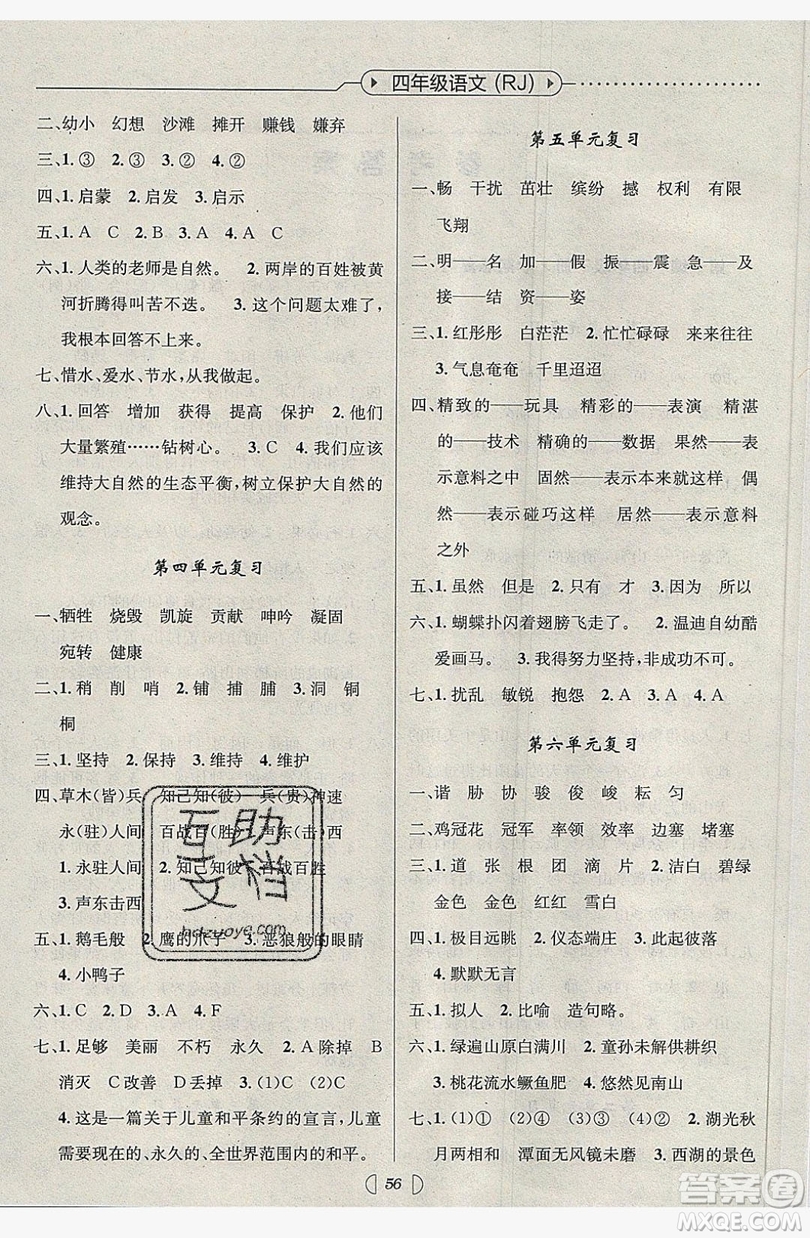 四年级语文(RJ)
二、幼小 幻想 沙滩 摊开 赚钱 嫌弃
三、1. ③ 2. ③ 3. ② 4. ②
四、1. 启蒙 2. 启发 3. 启示
五、1. A C 2. B 3. A 4. A C
六、1. 人类的老师是自然。 2. 两岸的百姓被黄
河折腾得叫苦不迭。 3. 这个问题太难了,
我根本回答不上来。
七、惜水、爱水、节水,从我做起。
八、1. 回答 增加 获得 提高 保护 2. 他们
大量繁殖……钻树心。 3. C 4. 我们应该
维持大自然的生态平衡,树立保护大自然的
观念。
第四单元复习
一、牺牲 烧毁 凯旋 贡献 呻吟 凝固
宛转 健康
二、1. 稍 削 哨 2. 铺 捕 脯 3. 洞 铜
桐
三、1. 坚持 2. 保持 3. 维持 4. 维护
四、草木(皆)兵 知己知(彼) 兵(贵)神速
永(驻)人间 百战百(胜) 声东(击)西
1. 永驻人间 2. 知己知彼 百战百胜
3. 声东击西
五、1. 鹅毛般 2. 鹰的爪子 3. 恶狼般的眼睛
4. 小鸭子
六、1. C 2. D 3. A 4. F
七、1. 足够 美丽 不朽 永久 2. A除掉 B
消灭 C改善 D丢掉 3. (1)C (2)C
4. 这是一篇关于儿童和平条约的宣言,儿童
需要现在的、永久的、全世界范围内的和平。
第五单元复习
一、畅 干扰 茁壮 缤纷 撼 权利 有限
飞翔
二、明——名 加——假 振——震 急——及
接——结 资——姿
三、1. 红彤彤 白茫茫 2. 忙忙碌碌 来来往往
3. 气息奄奄 千里迢迢
四、精致的——玩具 精彩的——表演 精湛
的——技术 精确的——数据 果然——表
示意料之中 固然——表示本来就这样 偶
然——表示碰巧这样 居然——表示意料
之外
五、1. 虽然 但是 2. 只有 才 3. 因为 所以
六、1. 蝴蝶扑闪着翅膀飞走了。 2. 温迪自幼酷
爱画马。 3. 我得努力坚持,非成功不可。
七、1. 扰乱 敏锐 抱怨 2. A 3. A 4. A
第六单元复习
一、谐 胁 协 骏 俊 峻 耘 匀
二、鸡冠花 冠军 率领 效率 边塞 堵塞
三、1. 道 张 根 团 滴 片 2. 洁白 碧绿
金色 金色 红红 雪白
四、1. 极目远眺 2. 仪态端庄 3. 此起彼落
4. 默默无言
五、1. 拟人 2. 比喻 造句略。
六、1. 绿遍山原白满川 2. 童孙未解供耕织
3. 桃花流水鳜鱼肥 4. 悠然见南山
七、1. (1)① (2)④ (3)② (4)② 2. 湖光秋
月两相和 潭面无风镜未磨 3. 西湖的景色
56
互助
文档
hdzuoye.com
答案圈
MXQE.COM